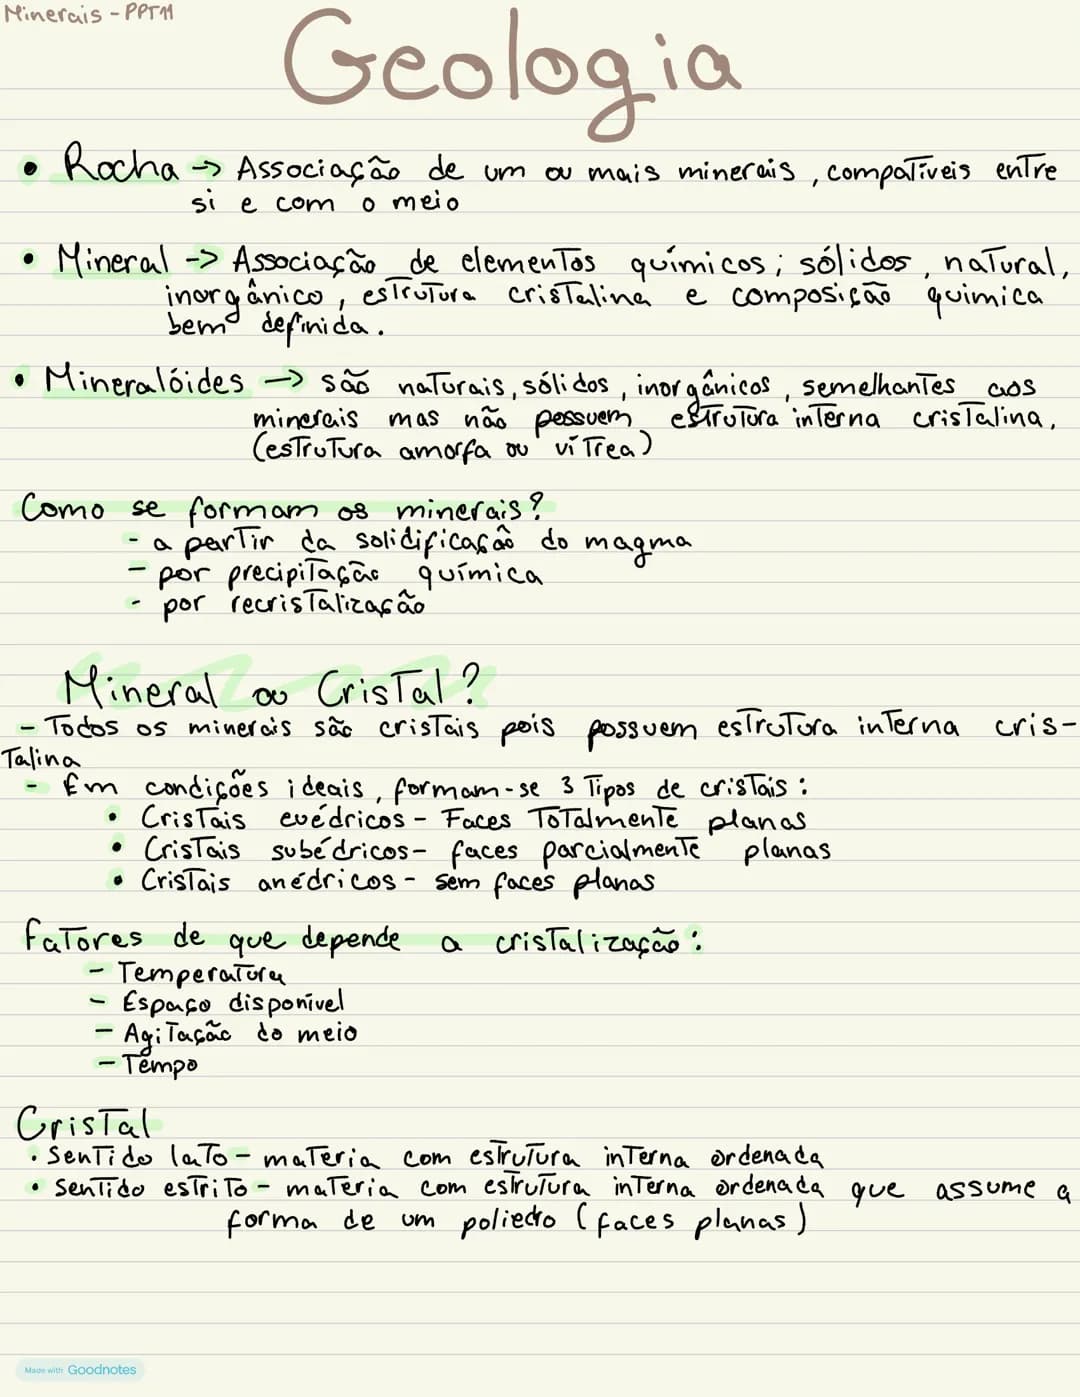 Minerais - PPT11
Geologia
• Rocha -> Associação de um ou mais minerais, compatíveis entre
si e com o meio
• Mineral -> Associação de elementos químicos; sólidos, natural,
inorgânico, estrutura cristalina e composição quimica
bem definida.
• Mineralóides -> são naturais, sólidos, inorgânicos, semelhantes aos
minerais mas não pessuem estrutura interna cristalina,
(estrutura amorfa ou vítrea)
Como se formam os minerais?
- a partir da solidificação do magma
- por precipitação química
- por recristalização
Mineral ou Cristal?
- Todos os minerais são cristais pois possuem estrutura interna cris-
talina
- Em condições ideais, formam-se 3 tipos de cristais:
• Cristais euédricos - Faces Totalmente planas
• Cristais subédricos - faces parcialmente planas
• Cristais anédricos - sem faces planas
fatores de que depende a cristalização:
- Temperatura
- Espaço disponível
- Agitação do meio
- Tempo
Cristal
• Sentido lato - materia com estrutura interna ordenada
• Sentido estrito - materia com estrutura interna ordenada que assume a
forma de um poliedro (faces planas)
Made with Goodnotes